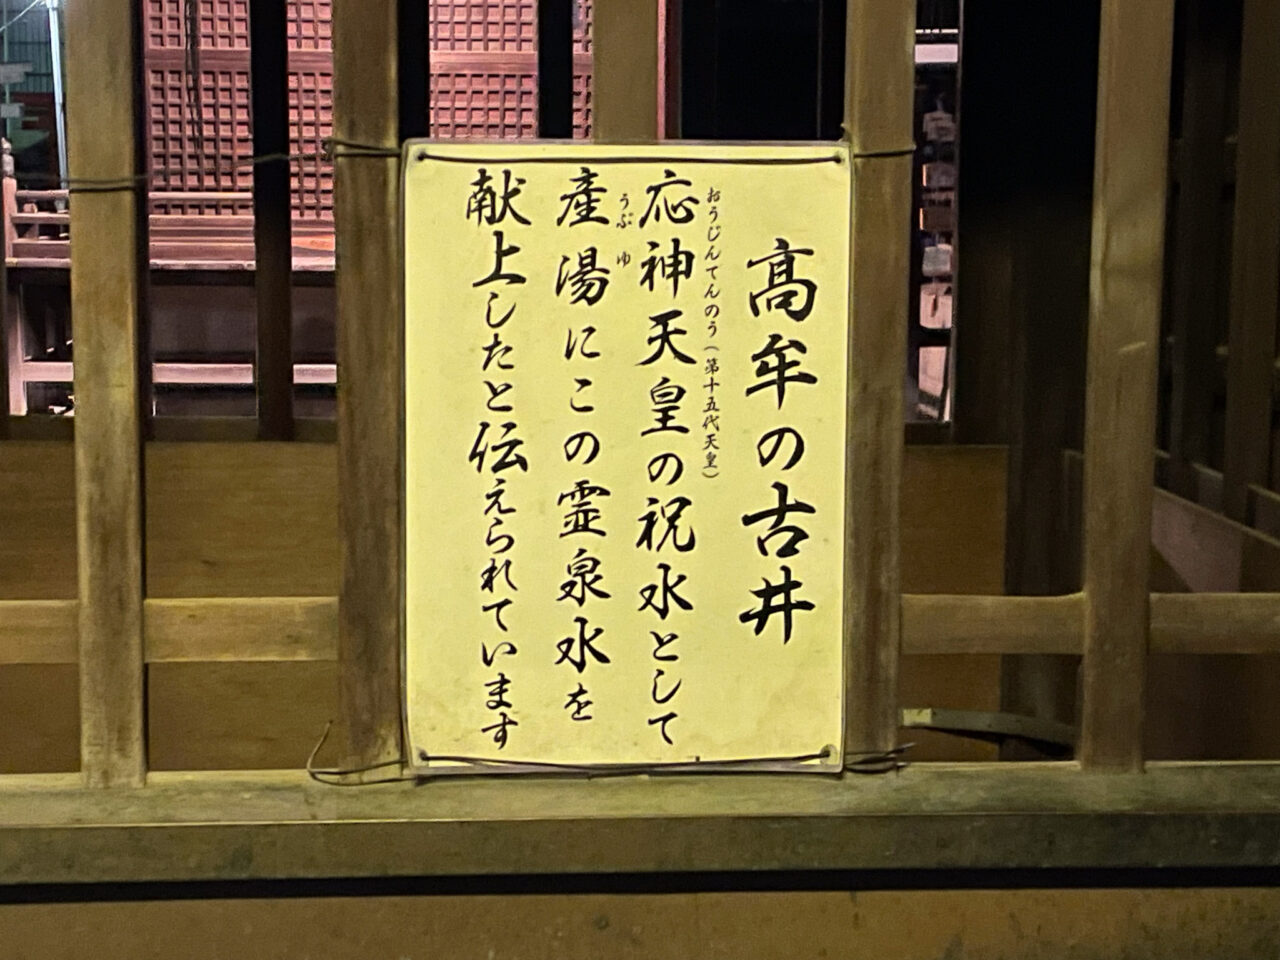 高牟の古井
おうじんてんのう（第十五代天皇）
応神天皇の祝水として
うぶゆ
産湯にこの霊泉水を
献上したと伝えられています